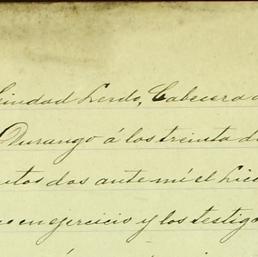 Ciudad Lerdo, Cabecera d
Durango á los treinta d
ntos dos ante mí el Lice
co en ejercicio y los testigo